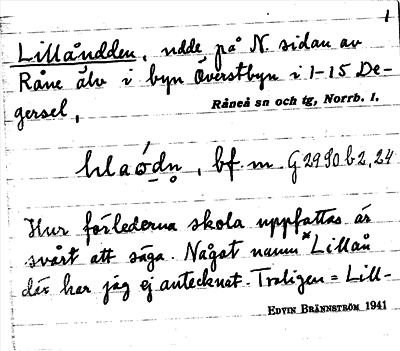 1
Lillåudden, udde på N. sidan av
Råne älv i byn Överstbyn i 1-15 De-
gersel,
Råneå sn och tg, Norrb. l.
bf. m G2990 b 2, 24
Hur förlederna skola uppfattas är
svårt att säga. Något namn *Lillån
där har jag ej antecknat. Troligen = Lill-
EDVIN BRÄNNSTRÖM 1941